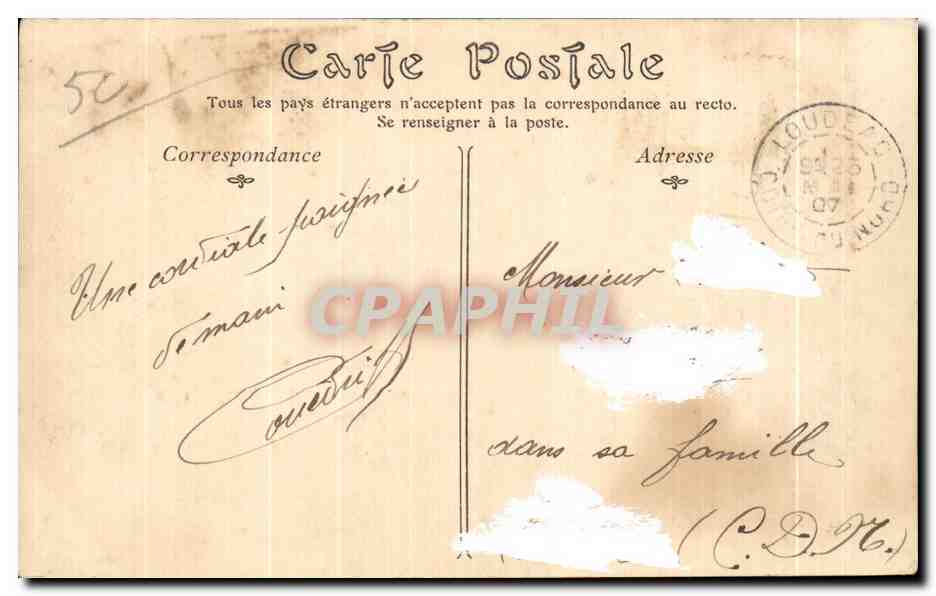 Carte Postale
Tous les pays étrangers n'acceptent pas la correspondance au recto.
Se renseigner à la poste.
Correspondance
Adresse
5c
LOUDEAC
07
DU NORD
Une cordiale poignée
de main
Monsieur
dans sa famille
(C.D.N.)
CPAPHIL